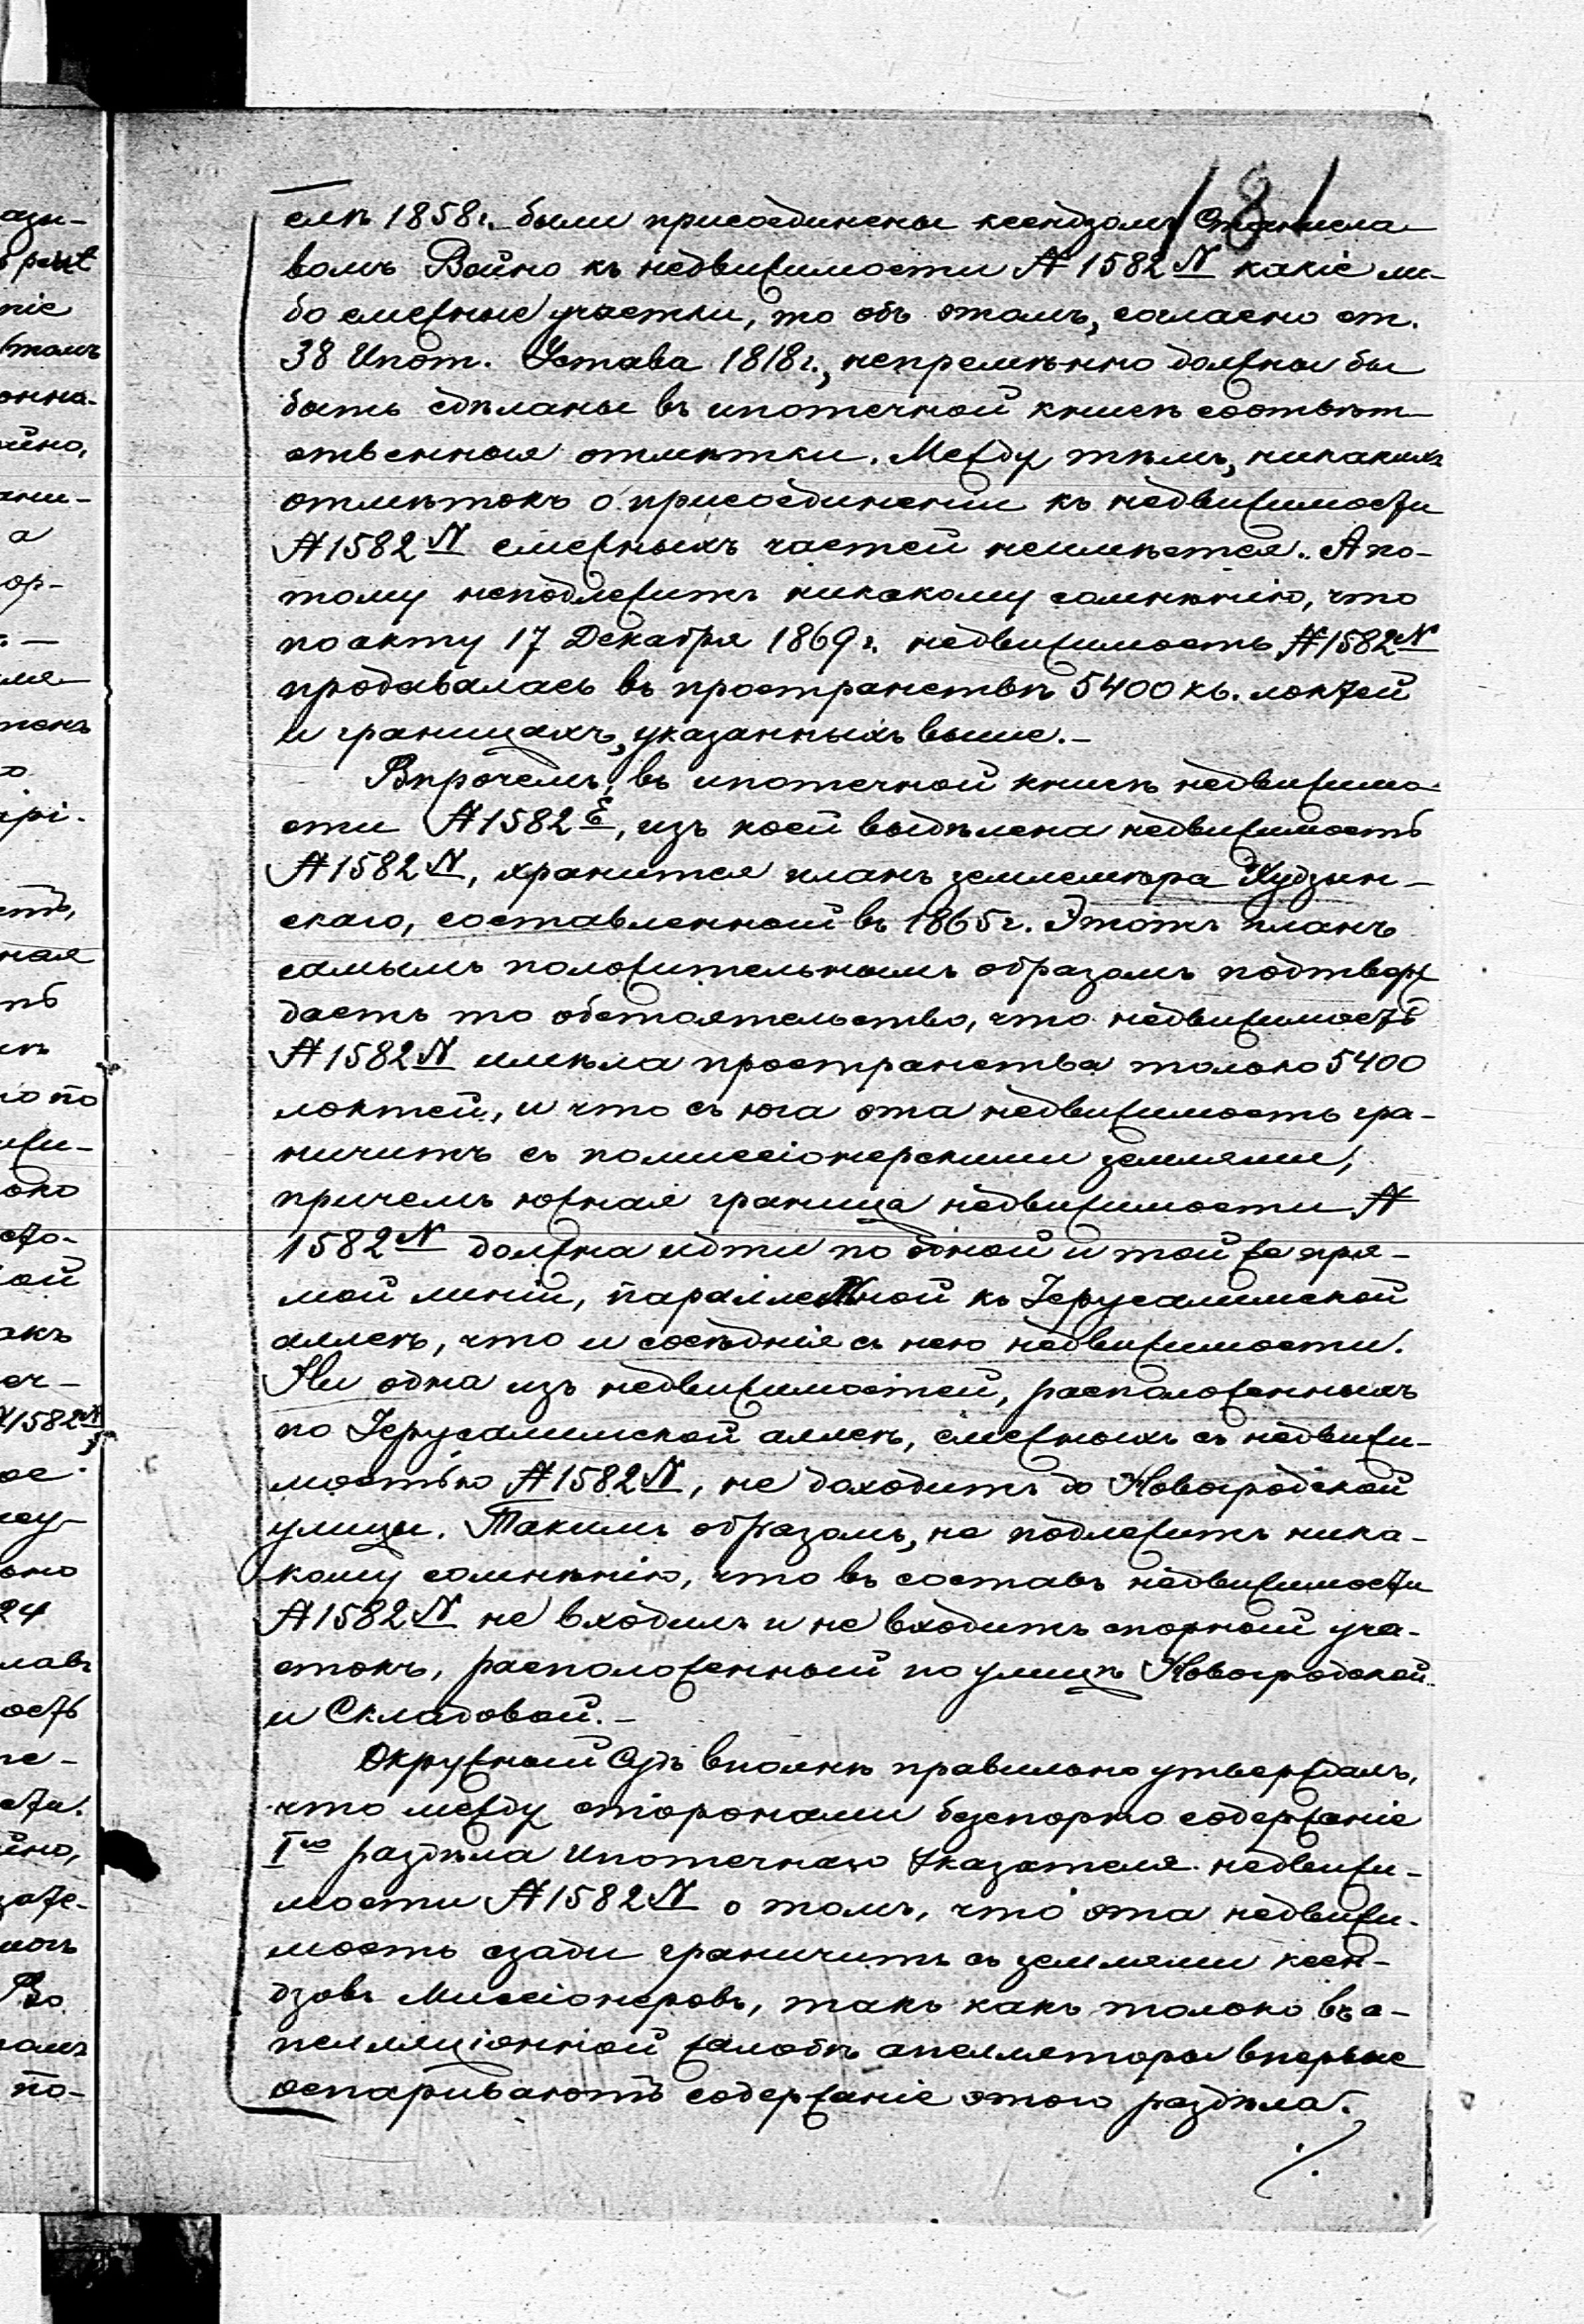 181
слѣ 1858 г. были присоединены ксендзомъ Станисла-
вомъ Война къ недвижимости № 1582 N какіе ли-
бо смежные участки, то объ этомъ, согласно ст.
38 Ипот. Устава 1818 г., непремѣнно должны бы
быть сдѣланы въ ипотечной книгѣ соотвѣт-
ственныя отмѣтки. Между тѣмъ, никакихъ
отмѣтокъ о присоединеніи къ недвижимости
№ 1582 N смежныхъ частей неимѣется. А по-
тому неподлежитъ никакому сомнѣнію, что
по акту 17 Декабря 1869 г. недвижимость № 1582 N
продавалась въ пространствѣ 5400 кв. локтей
и границахъ, указанныхъ выше.-
Впрочемъ, въ ипотечной книгѣ недвижимо-
сти № 1582 E, изъ коей выдѣлена недвижимость
№ 1582 N, хранится планъ землемѣра Худзын-
скаго, составленный въ 1865 г. Этотъ планъ
самымъ положительнымъ образомъ подтверж
даетъ то обстоятельство, что недвижимость
№ 1582 N имѣла пространства только 5400
локтей, и что съ юга эта недвижимость гра-
ничитъ съ помиссіонерскими землями,
причемъ южная граница недвижимости №
1582 N должна идти по одной и той же пря-
мой линіи, параллельной къ Іерусалимской
аллеѣ, что и сосѣднія съ нею недвижимости.
Ни одна изъ недвижимостей, расположенныхъ
по Іерусалимской аллеѣ, смежныхъ съ недвижи-
мостью № 1582 N, не доходитъ до Новогродской
улицы. Такимъ образомъ, не подлежитъ ника-
кому сомнѣнію, что въ составъ недвижимости
№ 1582 N не входилъ и не входитъ спорный уча-
стокъ, расположенный по улицѣ Новогродской
и Складовой.-
Окружный Судъ вполнѣ правильно утверждалъ,
что между сторонами безспорно содержаніе
I го раздѣла Ипотечнаго Указателя недвижи-
мости № 1582 N о томъ, что эта недвижи-
мость сзади граничитъ съ землями ксен-
дзовъ Миссіонеровъ, такъ какъ только въ а-
пелляціонной жалобѣ апелляторы впервые
оспариваютъ содержаніе этого раздѣла.
./.